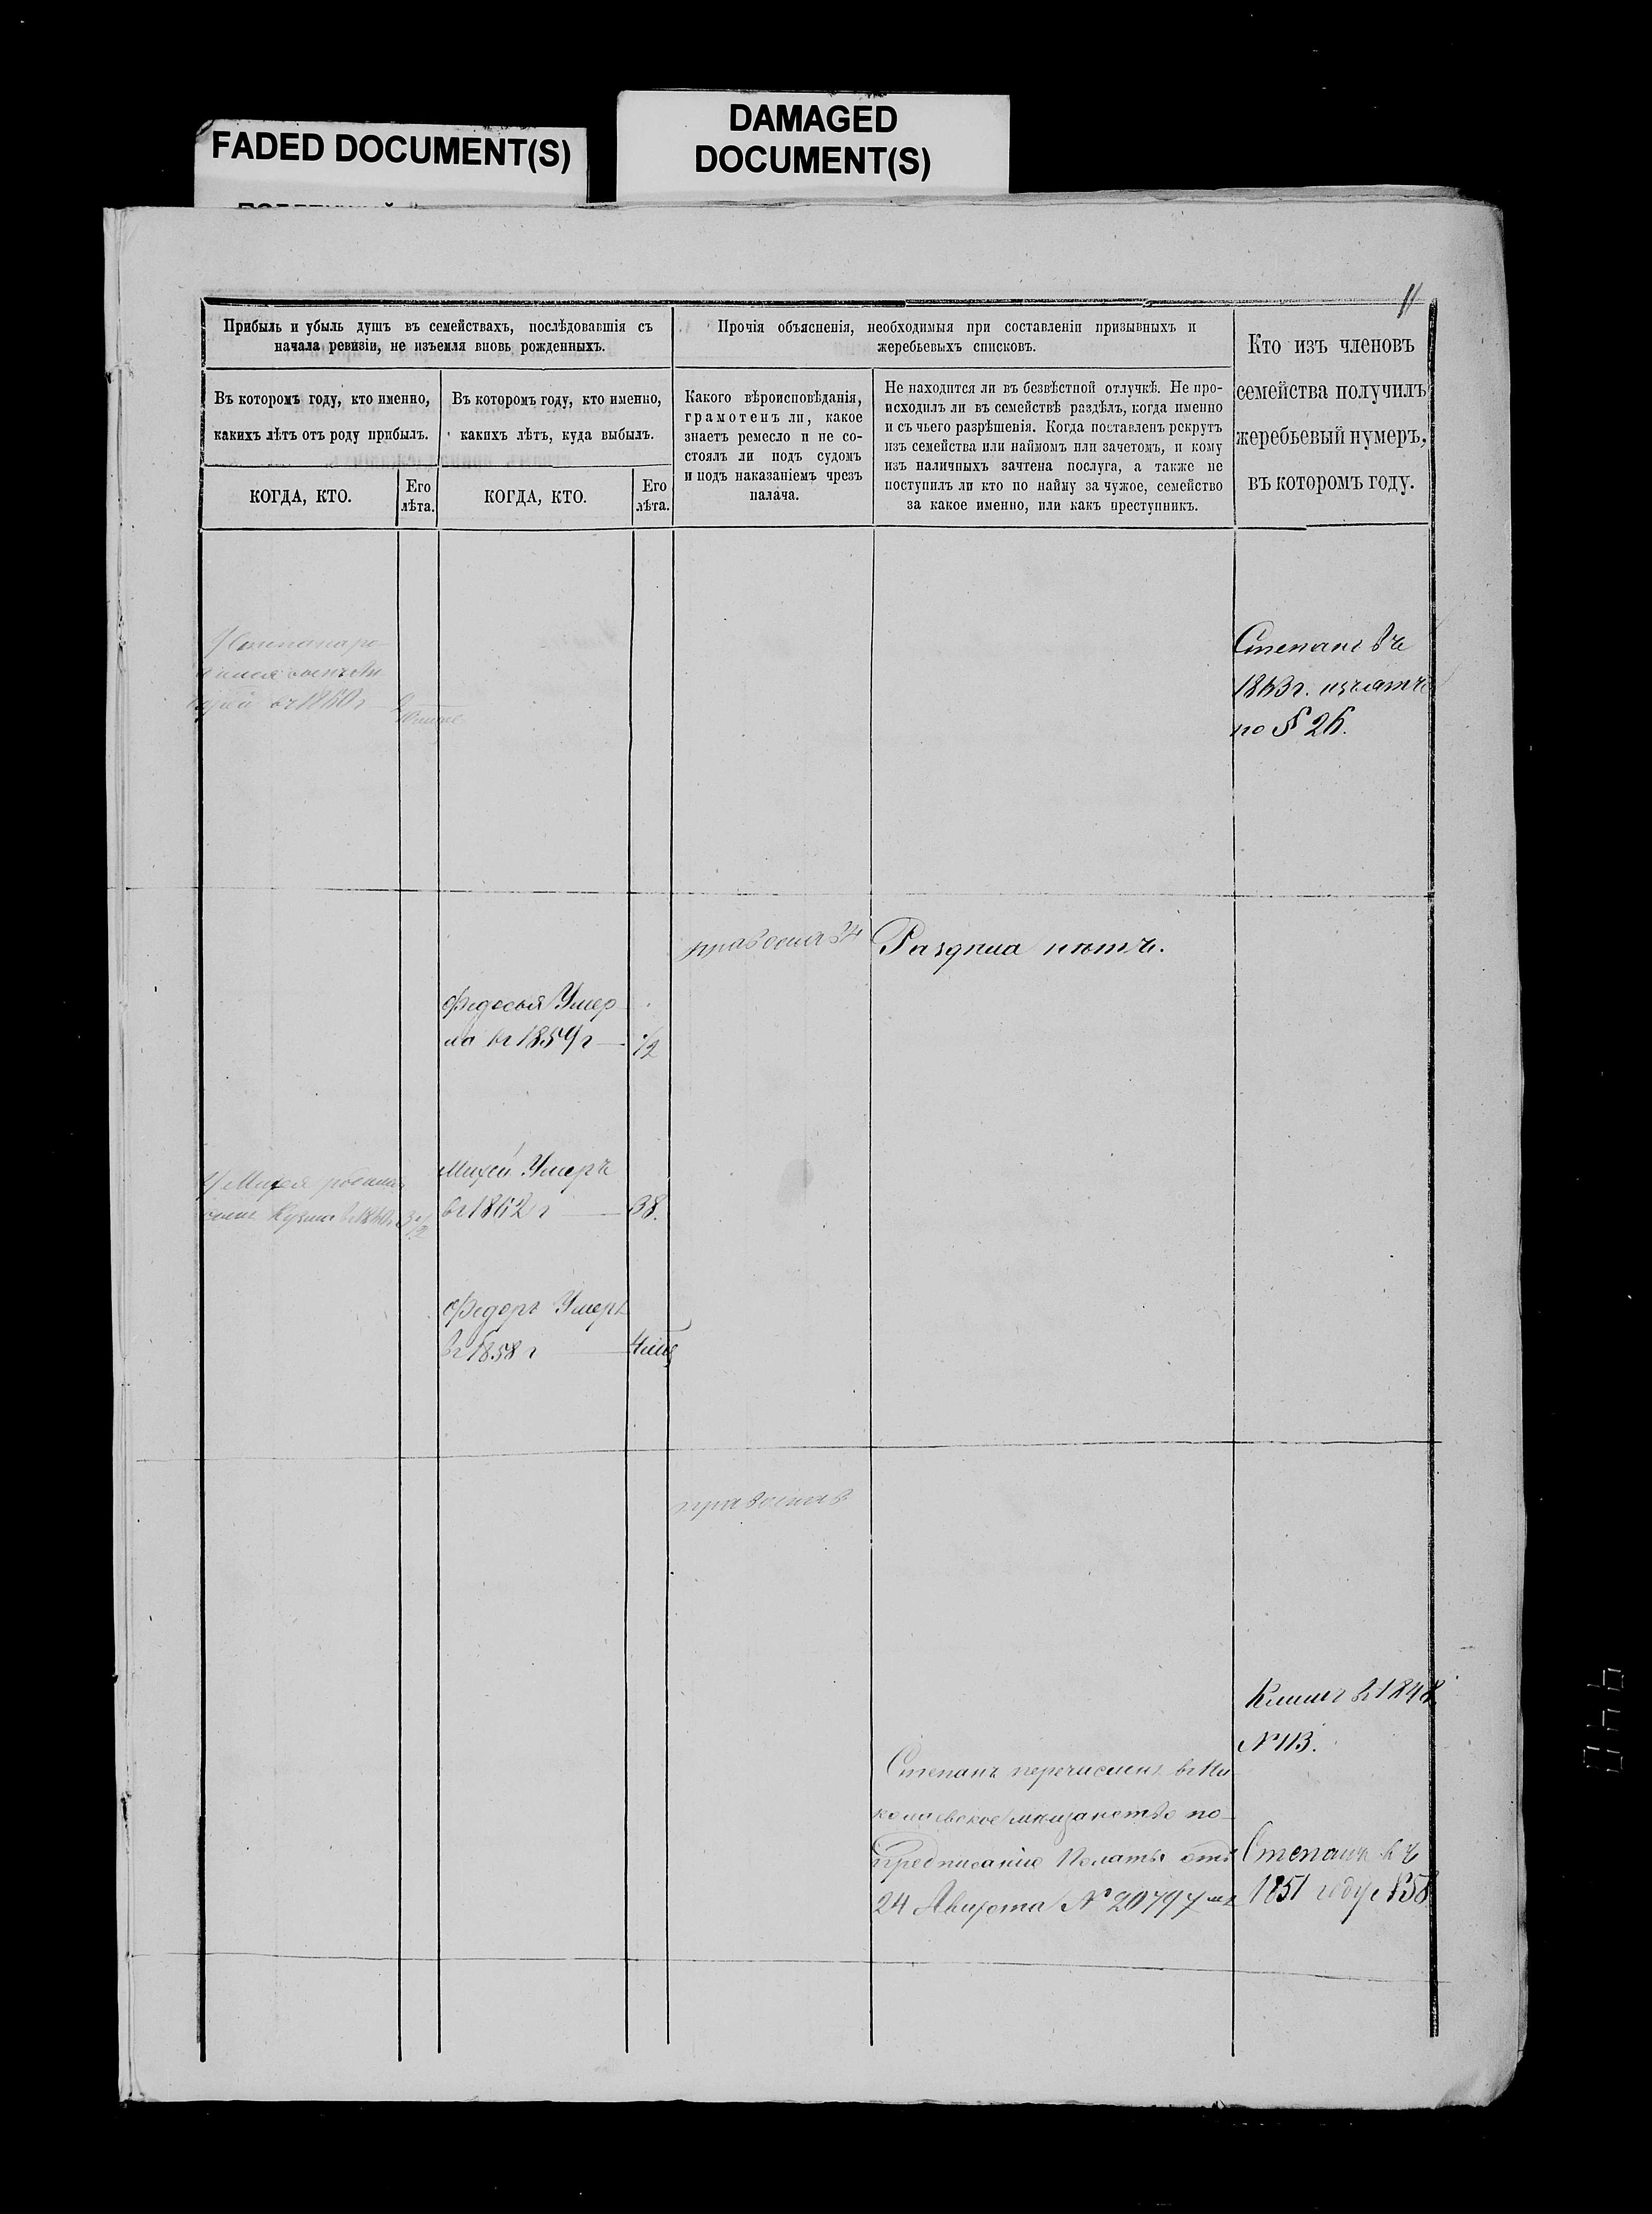 FADED DOCUMENT(S)
DAMAGED
DOCUMENT(S)
11
Прибыль и убыль душъ въ семействахъ, послѣдовавшія съ
начала ревизіи, не изъемля вновь рожденныхъ.
Прочія объясненія, необходимыя при составленіи призывныхъ и
жеребьевыхъ списковъ.
Кто изъ членовъ
семейства получилъ
жеребьевый нумеръ,
въ которомъ году.
Въ которомъ году, кто именно,
какихъ лѣтъ отъ роду прибылъ.
Въ которомъ году, кто именно,
какихъ лѣтъ, куда выбылъ.
Какого вѣроисповѣданія,
грамотенъ ли, какое
знаетъ ремесло и не со-
стоялъ ли подъ судомъ
и подъ наказаніемъ чрезъ
палача.
Не находится ли въ безвѣстной отлучкѣ. Не про-
исходилъ ли въ семействѣ раздѣлъ, когда именно
и съ чьего разрѣшенія. Когда поставленъ рекрутъ
изъ семейства или наймомъ или зачетомъ, и кому
изъ наличныхъ зачтена послуга, а также не
поступилъ ли кто по найму за чужое, семейство
за какое именно, или какъ преступникъ.
КОГДА, КТО.
Его
лѣта.
КОГДА, КТО.
Его
лѣта.
Степанъ въ
1863г.
по № 26.
1860г
православ
Раздѣла нѣтъ.
Федосья Умер
ла въ 1859г
1/2
Михей Умеръ
въ 1862г 38.
У Михея
сынъ Кузьма в 1860г
Федоръ Умеръ
въ 1858г
православ
Климъ въ 1848
№ 113.
Степанъ перечисленъ въ Ни
колаевское мещанство по
предписанію Палаты отъ
24 Августа № 20797
Степанъ въ
1851 году № 58